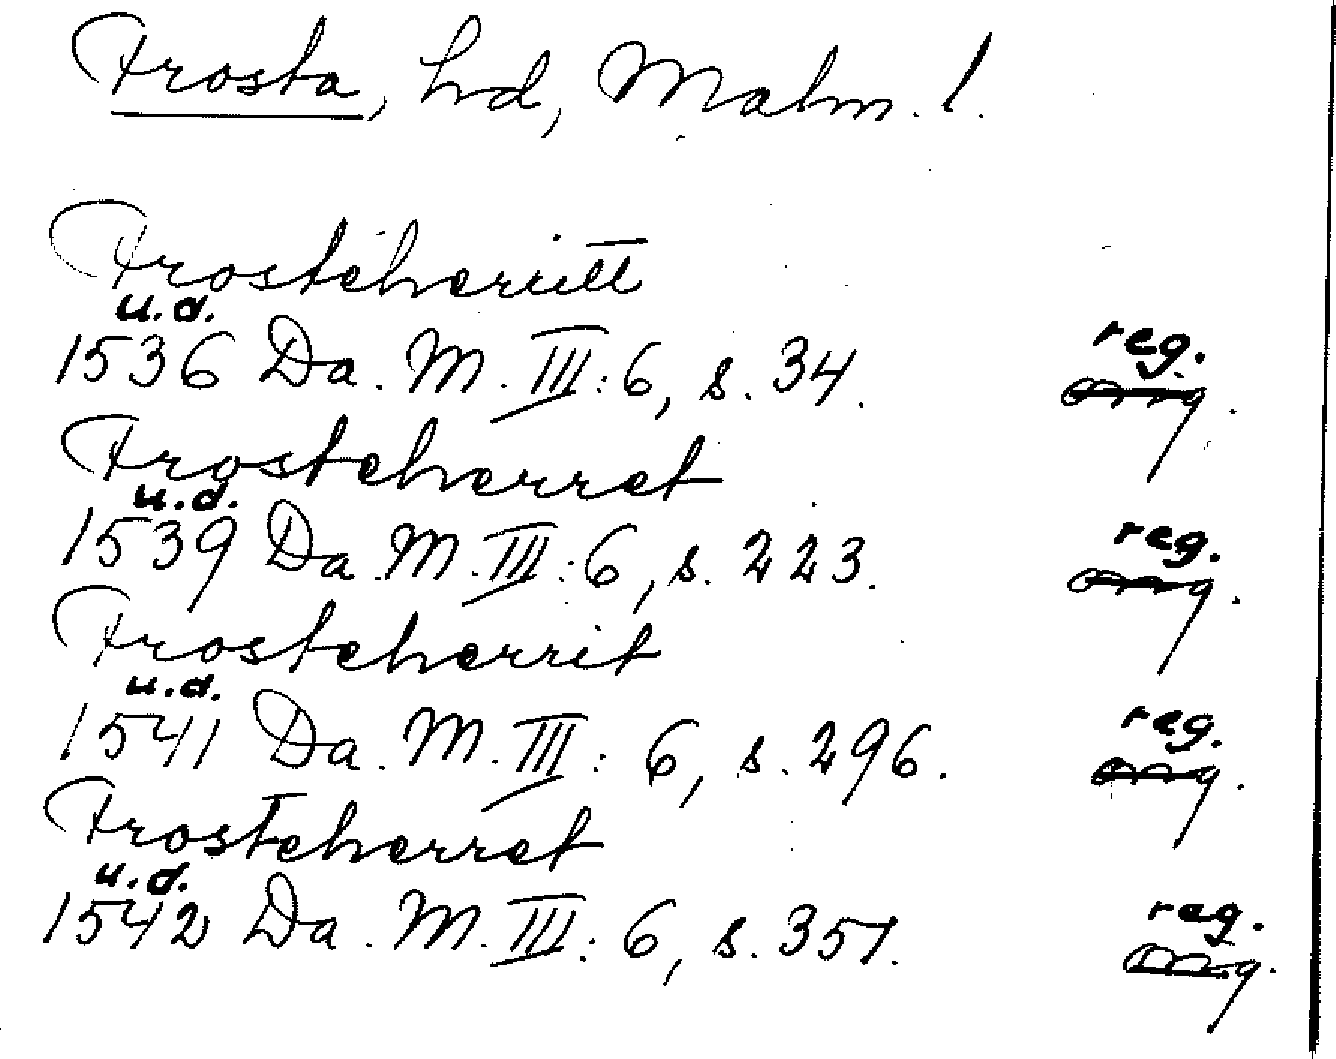 Frosta, hd, Malm. l.
Frosteherritt
u.d.
1536 Da. M. III:6, s. 34. reg.
Frosteherret
u.d.
1539 Da. M. III:6, s. 223. reg.
Frosteherrit
u.d.
1541 Da. M. III: 6, s. 296. reg.
Frosteherret
u.d.
1542 Da. M. III: 6, s. 351. reg.